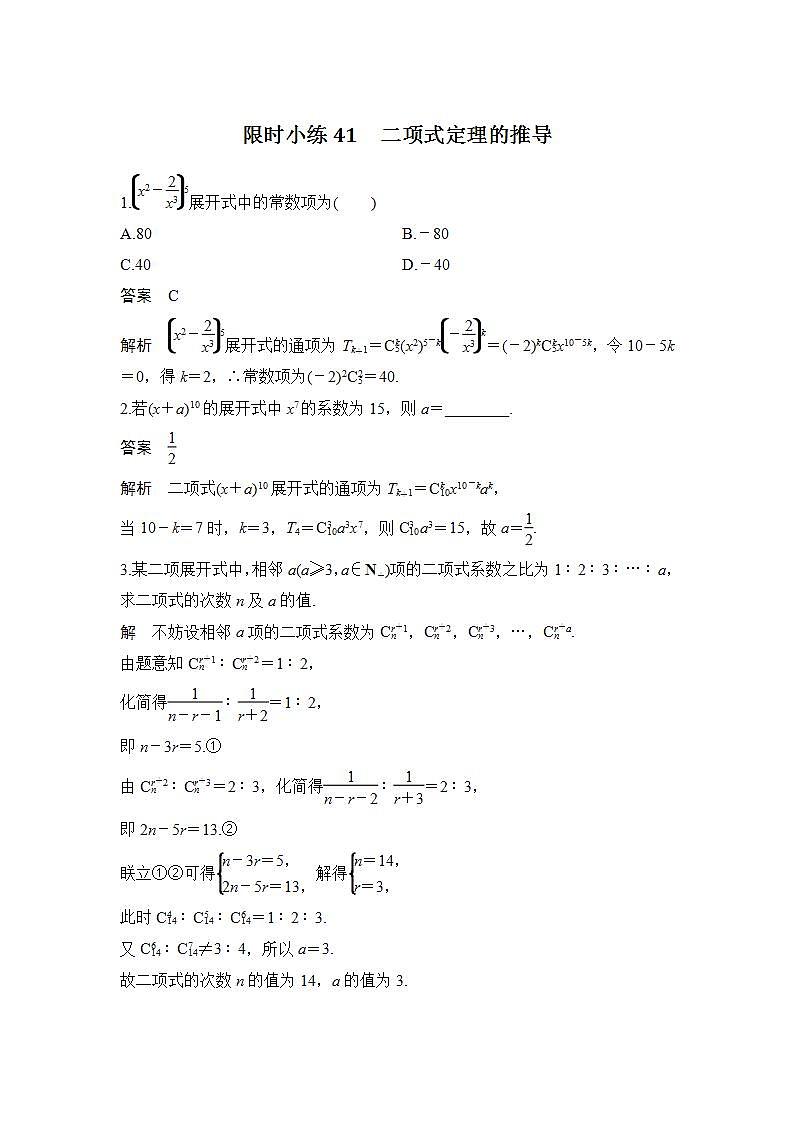 限时小练41 二项式定理的推导
1.(x²－2/x³)⁵展开式中的常数项为(　　)
A.80 B.－80
C.40 D.－40
答案 C
解析 (x²－2/x³)⁵展开式的通项为Tₖ₊₁＝C₅ᵏ(x²)⁵⁻ᵏ(－2/x³)ᵏ＝(－2)ᵏC₅ᵏx¹⁰⁻⁵ᵏ，令10－5k
＝0，得k＝2，∴常数项为(－2)²C₅²＝40.
2.若(x＋a)¹⁰的展开式中x⁷的系数为15，则a＝________.
答案 1/2
解析 二项式(x＋a)¹⁰展开式的通项为Tₖ₊₁＝C₁₀ᵏx¹⁰⁻ᵏaᵏ，
当10－k＝7时，k＝3，T₄＝C₁₀³a³x⁷，则C₁₀³a³＝15，故a＝1/2.
3.某二项展开式中，相邻a(a≥3，a∈N₊)项的二项式系数之比为1∶2∶3∶…∶a，
求二项式的次数n及a的值.
解 不妨设相邻a项的二项式系数为Cₙʳ⁺¹，Cₙʳ⁺²，Cₙʳ⁺³，…，Cₙʳ⁺ᵃ.
由题意知Cₙʳ⁺¹∶Cₙʳ⁺²＝1∶2，
化简得1/(n－r－1)∶1/(r＋2)＝1∶2，
即n－3r＝5.①
由Cₙʳ⁺²∶Cₙʳ⁺³＝2∶3，化简得1/(n－r－2)∶1/(r＋3)＝2∶3，
即2n－5r＝13.②
联立①②可得{n－3r＝5，2n－5r＝13，解得{n＝14，r＝3，
此时C₁₄⁴∶C₁₄⁵∶C₁₄⁶＝1∶2∶3.
又C₁₄⁶∶C₁₄⁷≠3∶4，所以a＝3.
故二项式的次数n的值为14，a的值为3.